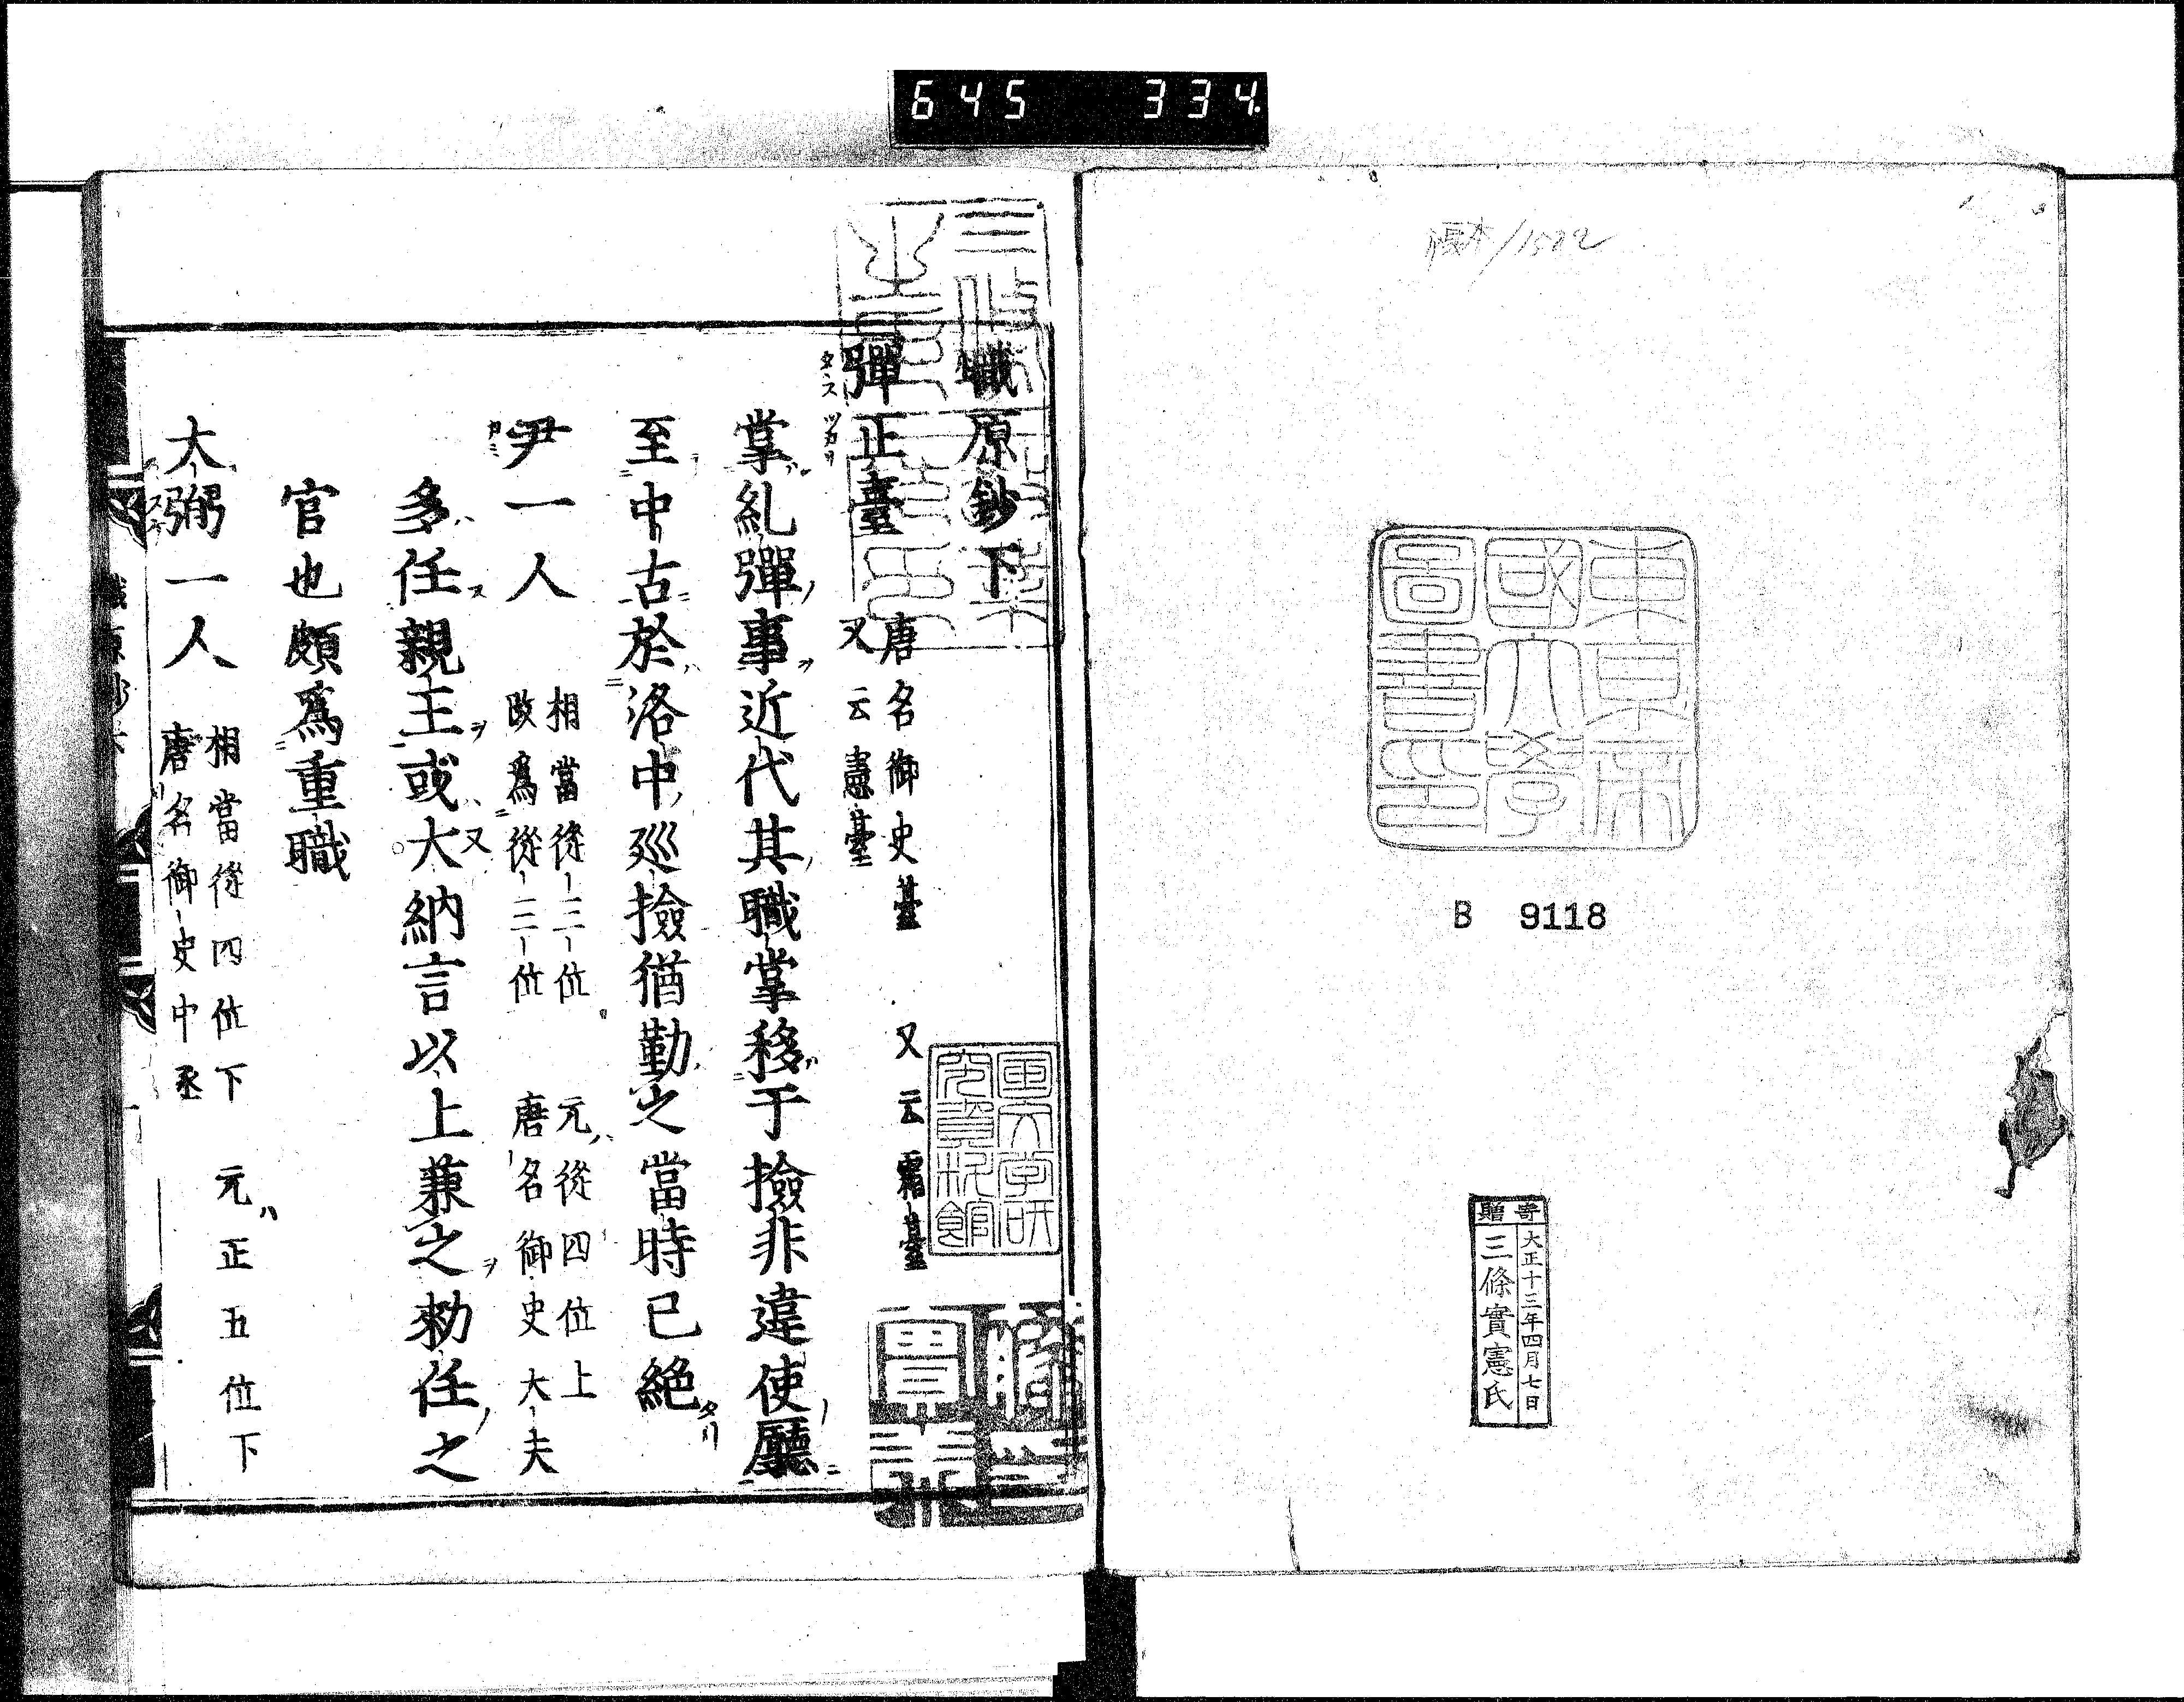 645 334
1522
東京帝
國大學
圖書印
B 9118
寄贈
大正十三年四月七日
三條實憲氏
職原鈔下
彈正臺 唐名御史臺 又云霜臺
又云憲臺
掌糺彈事近代其職掌移于撿非違使廳
至中古於洛中巡撿猶勤之當時已絕
尹一人 相當從三位 元從四位上
改爲從三位 唐名御史大夫
多任親王或大納言以上兼之勅任之
官也頗爲重職
大弼一人 相當從四位下 元正五位下
唐名御史中丞